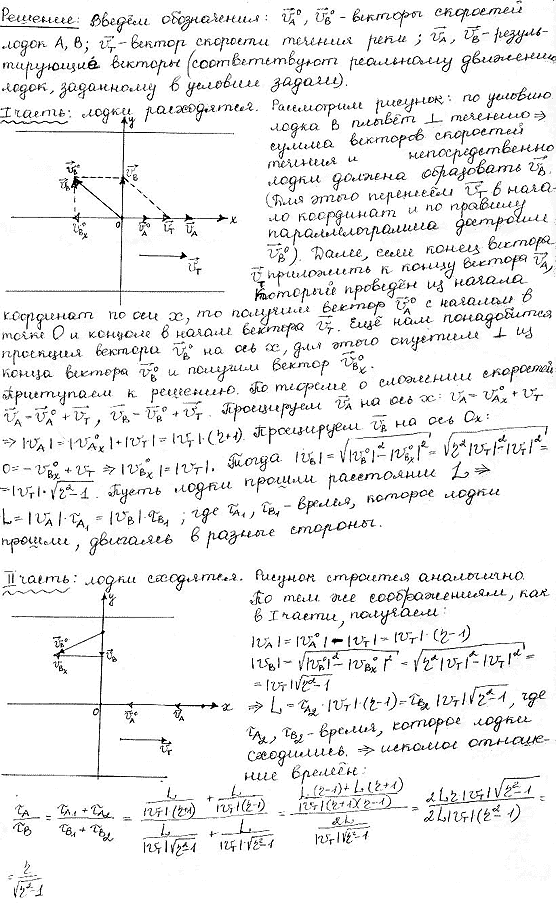 Решение: Введём обозначения: v⃗_A⁰, v⃗_B⁰ - векторы скоростей
лодок A, B; v⃗_T - вектор скорости течения реки; v⃗_A, v⃗_B - резуль-
тирующие векторы (соответствуют реальному движению
лодок, заданному в условии задачи).
I часть: лодки расходятся. Рассмотрим рисунок: по условию
лодка B плывёт ⊥ течению ⇒
сумма векторов скоростей
течения и непосредственно
лодки должна образовать v⃗_B.
(Для этого перенесём v⃗_T в нача-
ло координат и по правилу
параллелограмма достроим
v⃗_B⁰). Далее, если конец вектора
v⃗_T приложить к концу вектора v⃗_A,
который проведён из начала
y
v⃗_B⁰ v⃗_B
v⃗_Bx⁰ 0 v⃗_A⁰ v⃗_T v⃗_A x
v⃗_T
координат по оси x, то получим вектор v⃗_A⁰ с началом в
точке O и концом в начале вектора v⃗_T. Ещё нам понадобится
проекция вектора v⃗_B⁰ на ось x, для этого опустим ⊥ из
конца вектора v⃗_B⁰ и получим вектор v⃗_Bx⁰.
Приступаем к решению. По теореме о сложении скоростей
v⃗_A = v⃗_A⁰ + v⃗_T, v⃗_B = v⃗_B⁰ + v⃗_T. Проецируем v⃗_A на ось x: v_A = v_Ax⁰ + v_T
⇒ |v_A| = |v_Ax⁰| + |v_T| = |v_T|·(η+1). Проецируем v⃗_B на ось Ox:
0 = -v_Bx⁰ + v_T ⇒ |v_Bx⁰| = |v_T|. Тогда |v_B| = √(|v_B⁰|² - |v_Bx⁰|²) = √(η²|v_T|² - |v_T|²) =
= |v_T|·√(η²-1). Пусть лодки прошли расстояние L ⇒
L = |v_A|·τ_A1 = |v_B|·τ_B1; где τ_A1, τ_B1 - время, которое лодки
прошли, двигаясь в разные стороны.
II часть: лодки сходятся. Рисунок строится аналогично.
По тем же соображениям, как
в I части, получаем:
|v_A| = |v_A⁰| - |v_T| = |v_T|·(η-1)
|v_B| = √(|v_B⁰|² - |v_Bx⁰|²) = √(η²|v_T|² - |v_T|²) =
= |v_T|√(η²-1)
⇒ L = τ_A2·|v_T|·(η-1) = τ_B2|v_T|√(η²-1), где
τ_A2, τ_B2 - время, которое лодки
сходились. ⇒ искомое отноше-
ние времён:
y
v⃗_B⁰
v⃗_Bx⁰ v⃗_B
0 v⃗_A⁰ v⃗_A x
v⃗_T
τ_A/τ_B = (τ_A1 + τ_A2)/(τ_B1 + τ_B2) = (L/(|v_T|(η+1)) + L/(|v_T|(η-1)))/(L/(|v_T|√(η²-1)) + L/(|v_T|√(η²-1))) = ((L(η-1) + L(η+1))/(|v_T|(η+1)(η-1)))/(2L/(|v_T|√(η²-1))) = 2Lη|v_T|√(η²-1)/(2L|v_T|(η²-1)) =
= η/√(η²-1)